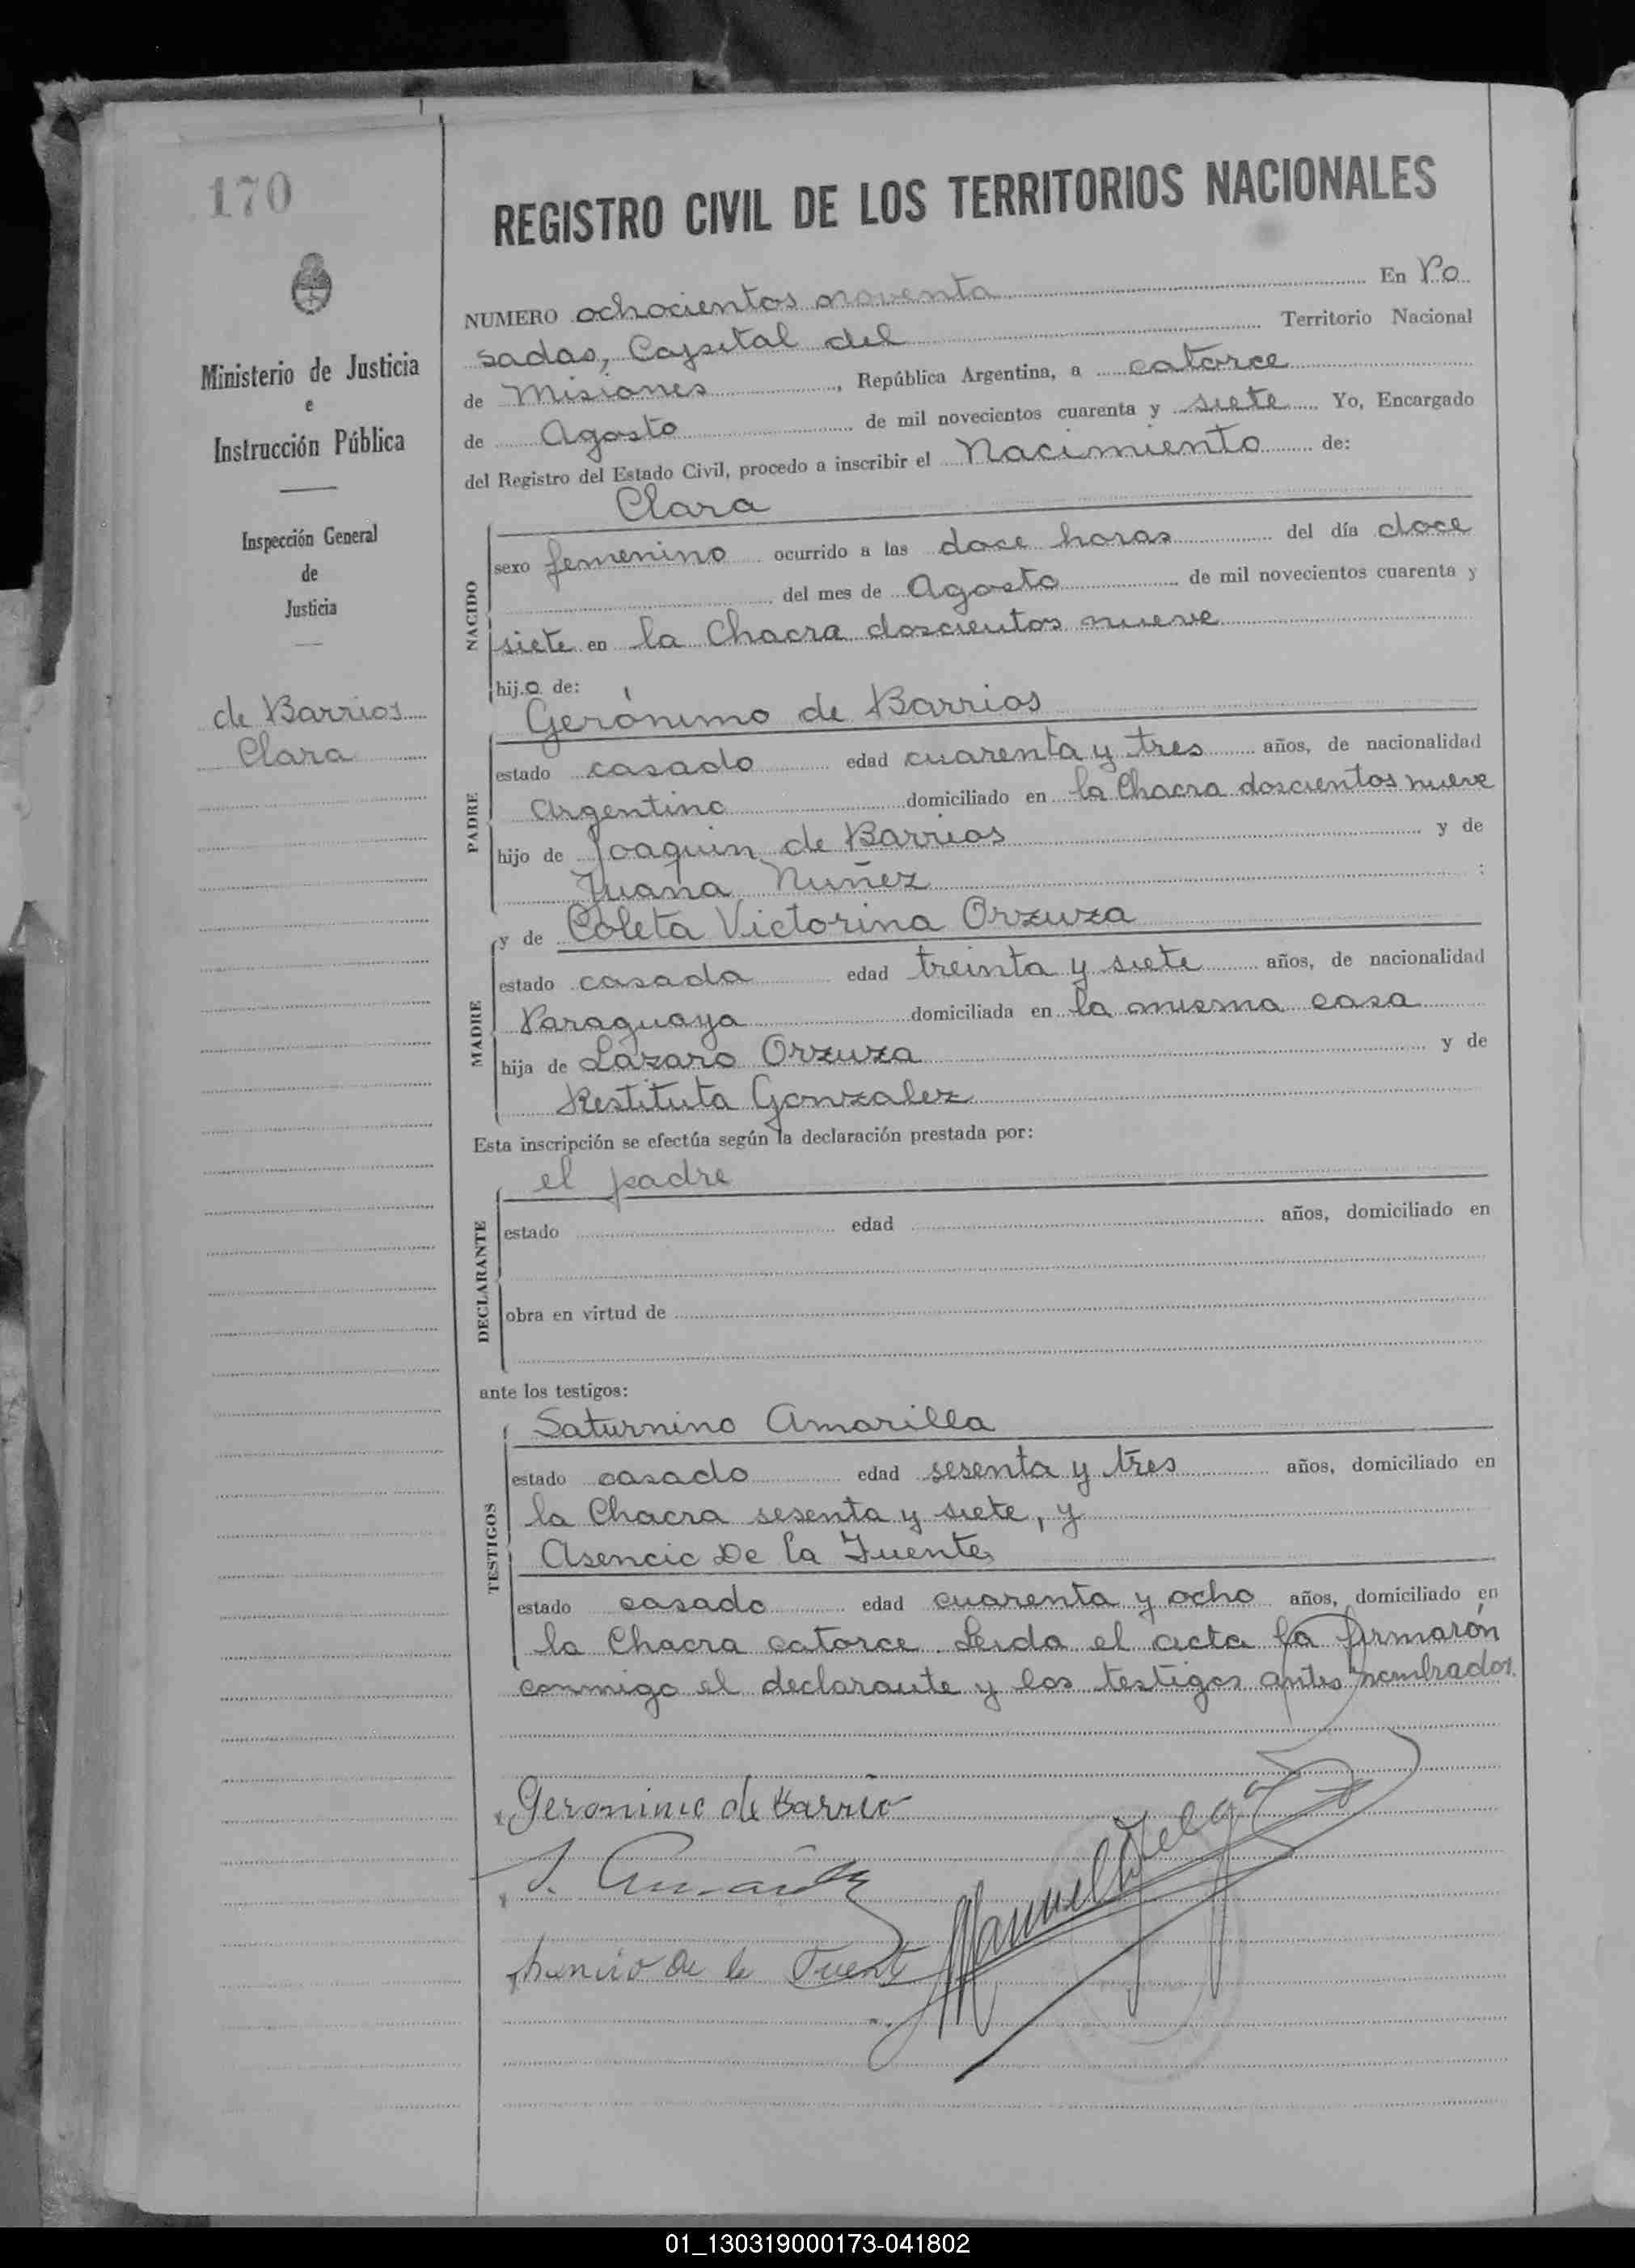 170
Ministerio de Justicia
e
Instrucción Pública
Inspección General
de
Justicia
de Barrios
Clara
REGISTRO CIVIL DE LOS TERRITORIOS NACIONALES
NUMERO ochocientos noventa En Po
sadas, Capital del Territorio Nacional
de Misiones, República Argentina, a catorce
de Agosto de mil novecientos cuarenta y siete Yo, Encargado
del Registro del Estado Civil, procedo a inscribir el Nacimiento de:
Clara
NACIDO
sexo femenino ocurrido a las doce horas del día doce
del mes de Agosto de mil novecientos cuarenta y
siete en la Chacra doscientos nueve
hij.a de:
Gerónimo de Barrios
PADRE
estado casado edad cuarenta y tres años, de nacionalidad
Argentino domiciliado en la Chacra doscientos nueve
hijo de Joaquin de Barrios y de
Juana Nuñez :
y de Coleta Victorina Orzuza
MADRE
estado casada edad treinta y siete años, de nacionalidad
Paraguaya domiciliada en la misma casa
hija de Lázaro Orzuza y de
Restituta Gonzalez
Esta inscripción se efectúa según la declaración prestada por:
el padre
DECLARANTE
estado edad años, domiciliado en
obra en virtud de
ante los testigos:
Saturnino Amarilla
TESTIGOS
estado casado edad sesenta y tres años, domiciliado en
la Chacra sesenta y siete, y
Asencio De la Fuente
estado casado edad cuarenta y ocho años, domiciliado en
la Chacra catorce. Leida el acta la firmarón
conmigo el declarante y los testigos antes nombrados.
Geronimo de Barrio
S. Amarilla
Asencio de la Fuente
Manuel
01_130319000173-041802